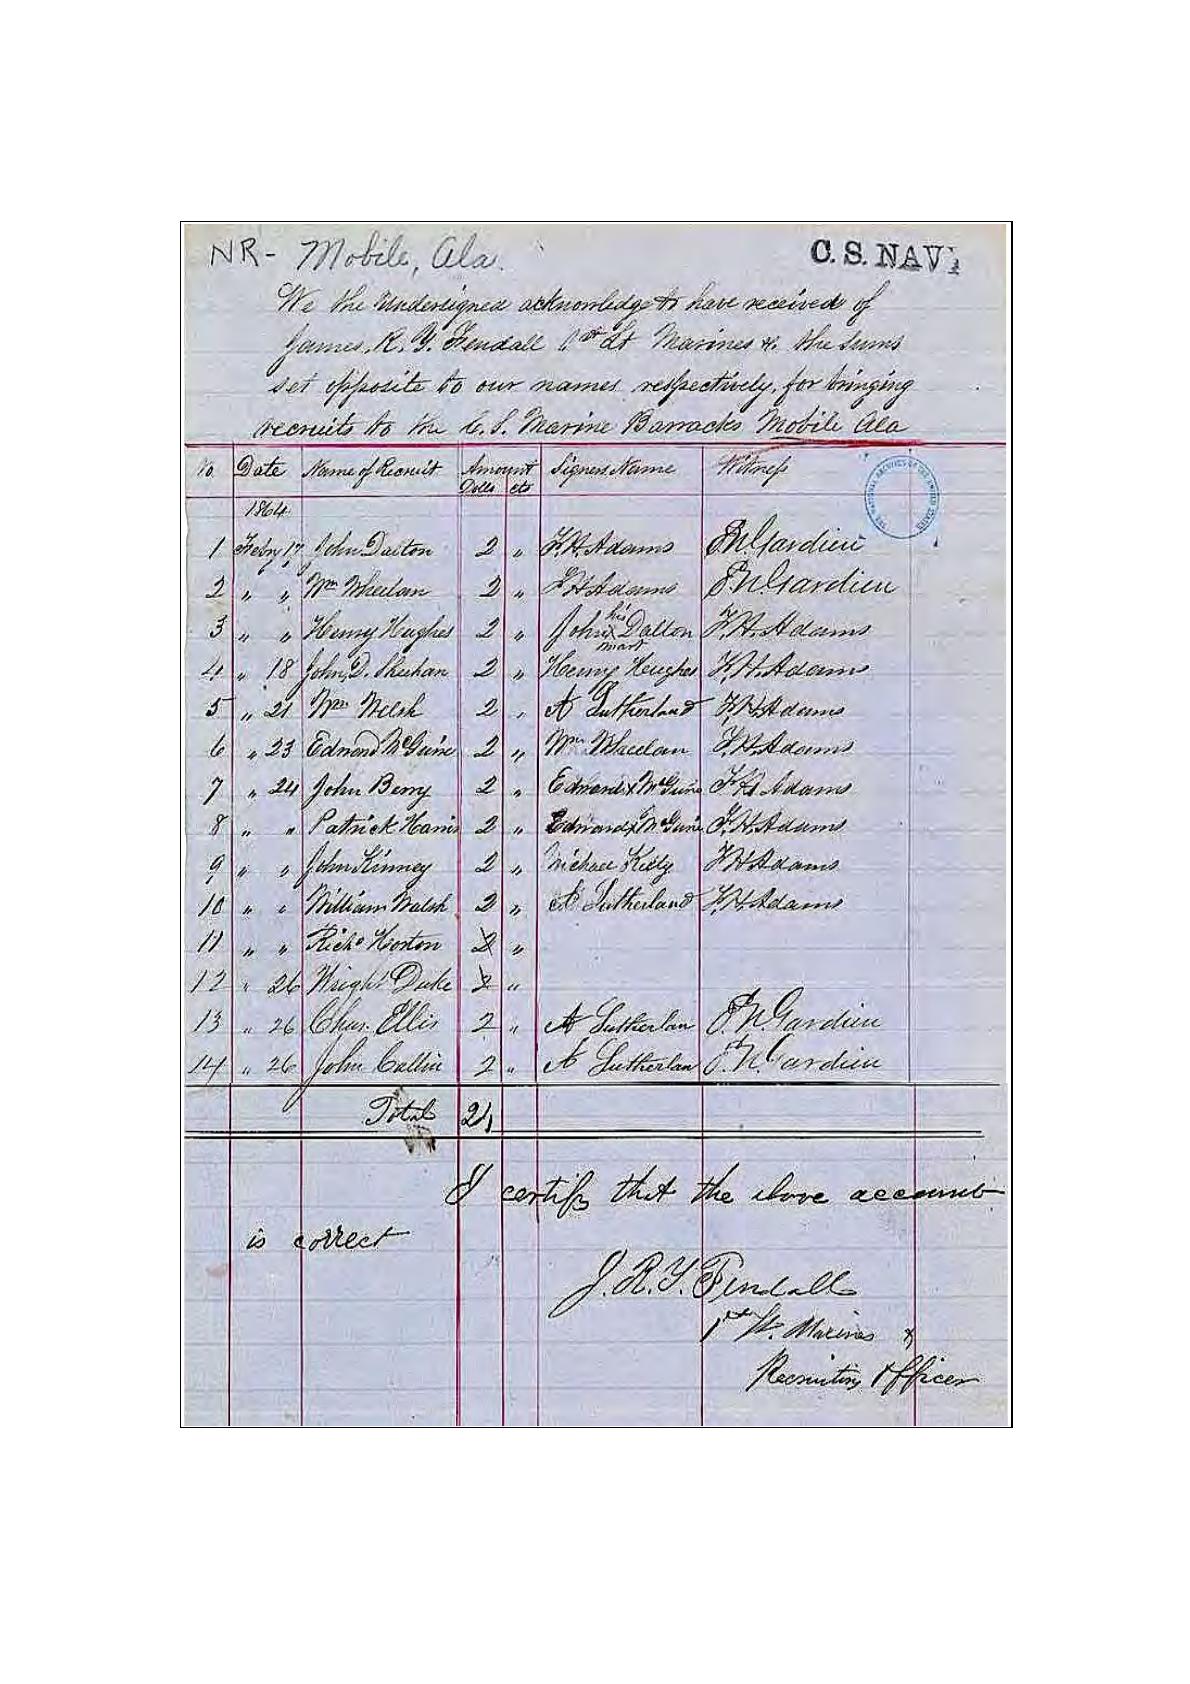 NR- Mobile, Ala. C.S. NAV
We the undersigned acknowledge to have received of
James. R. Y. Fendall 1st Lt Marines &c. the sums
set opposite to our names respectively, for bringing
recruits to the C.S. Marine Barracks Mobile Ala
No Date Name of Recruit Amount Signers Name Witness
Dolls cts
1864
1 Feby 17 John Dalton 2 " F.H. Adams P.N. Gardieu
2 " " Wm Wheelan 2 " F H Adams P.N. Gardieu
3 " " Henry Hughes 2 " John his x mark Dalton F.H. Adams
4 " 18 John D. Sheehan 2 " Henry Hughes F.H. Adams
5 " 21 Wm Welsh 2 " A Sutherland F.H. Adams
6 " 23 Edward McGuire 2 " Wm Wheelan F.H. Adams
7 " 24 John Berry 2 " Edward x McGuire F.H. Adams
8 " " Patrick Harris 2 " Edward x McGuire F.H. Adams
9 " " John Kinney 2 " Michael Kelly F.H. Adams
10 " " William Walsh 2 " A Sutherland F.H. Adams
11 " " Richd Horton 2 "
12 " 26 Wright Duke 2 "
13 " 26 Chas. Ellis 2 " A Sutherlan P.N. Gardieu
14 " 26 John Callin 2 " A Sutherlan P.N. Gardieu
Total 24
I certify that the above account
is correct
J. R. Y. Fendall
1st Lt. Marines &
Recruiting Officer
THE NATIONAL ARCHIVES OF THE UNITED STATES